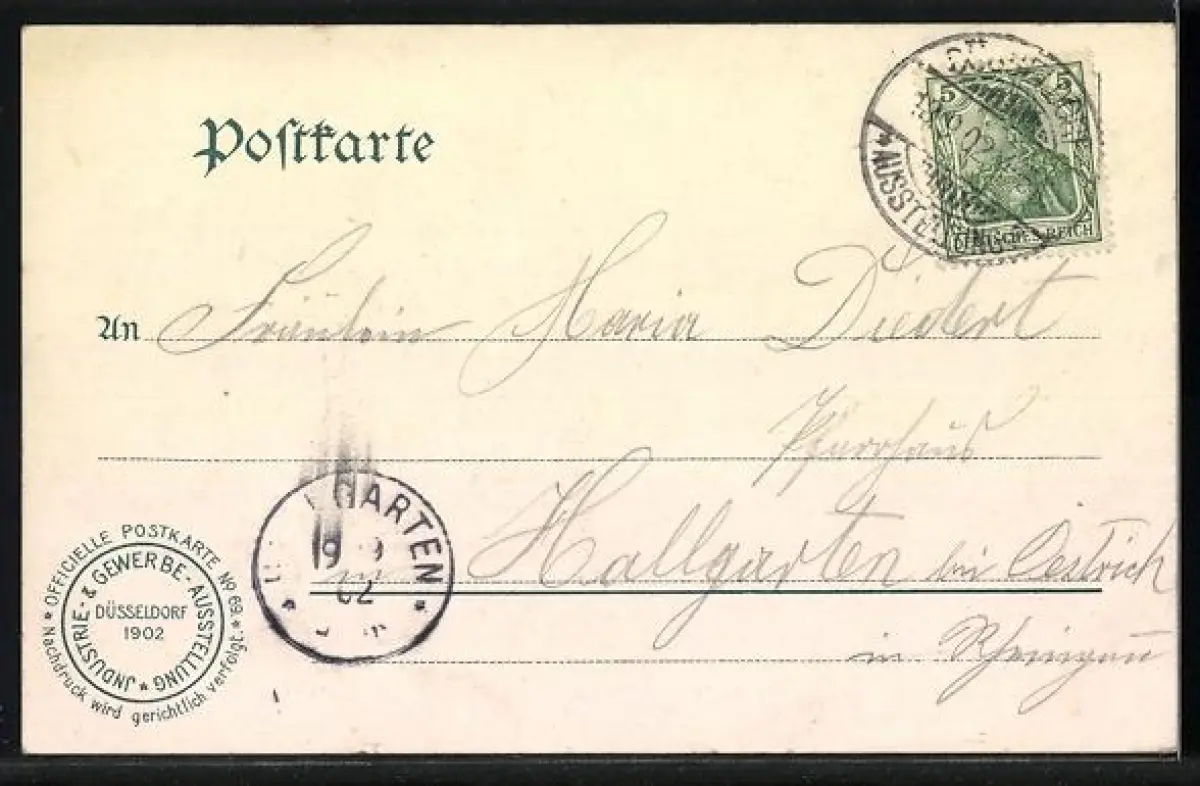 Postkarte
5 5
DEUTSCHES REICH
* AUSSTELLUNG
02
An Fräulein Maria Diedert
Pfarrhaus
Hallgarten bei Oestrich
in Rheingau
GARTEN *
19 9
02
* OFFICIELLE POSTKARTE No 69. * Nachdruck wird gerichtlich verfolgt.
JNDUSTRIE- & GEWERBE-AUSSTELLUNG *
DÜSSELDORF
1902